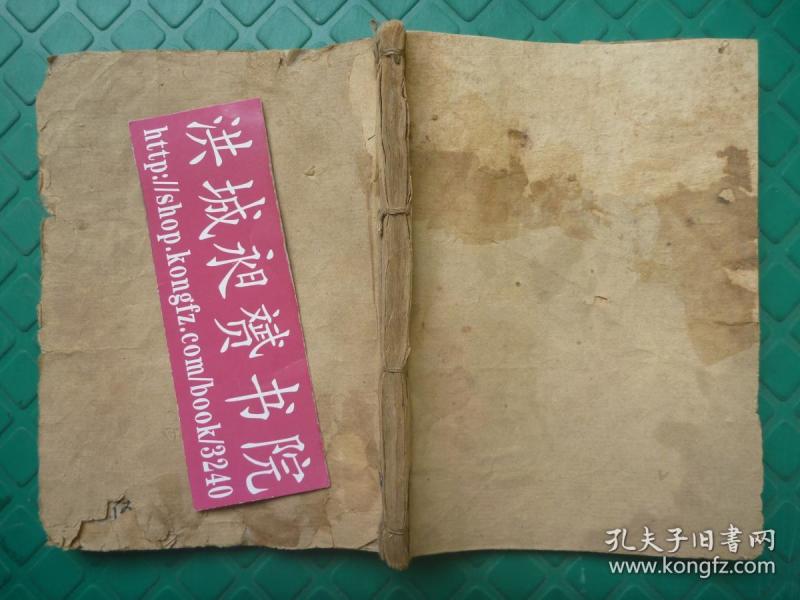 洪城昶赟书院
http://shop.kongfz.com/book/3240
孔夫子旧书网
www.kongfz.com